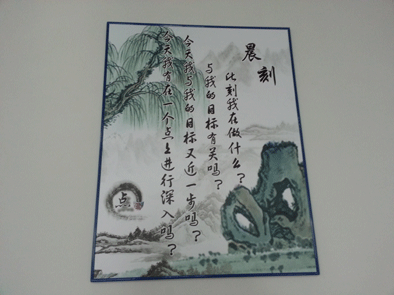 晨刻
此刻我在做什么？
与我的目标有关吗？
今天我与我的目标又近一步吗？
今天我有在一个点上进行深入吗？
点